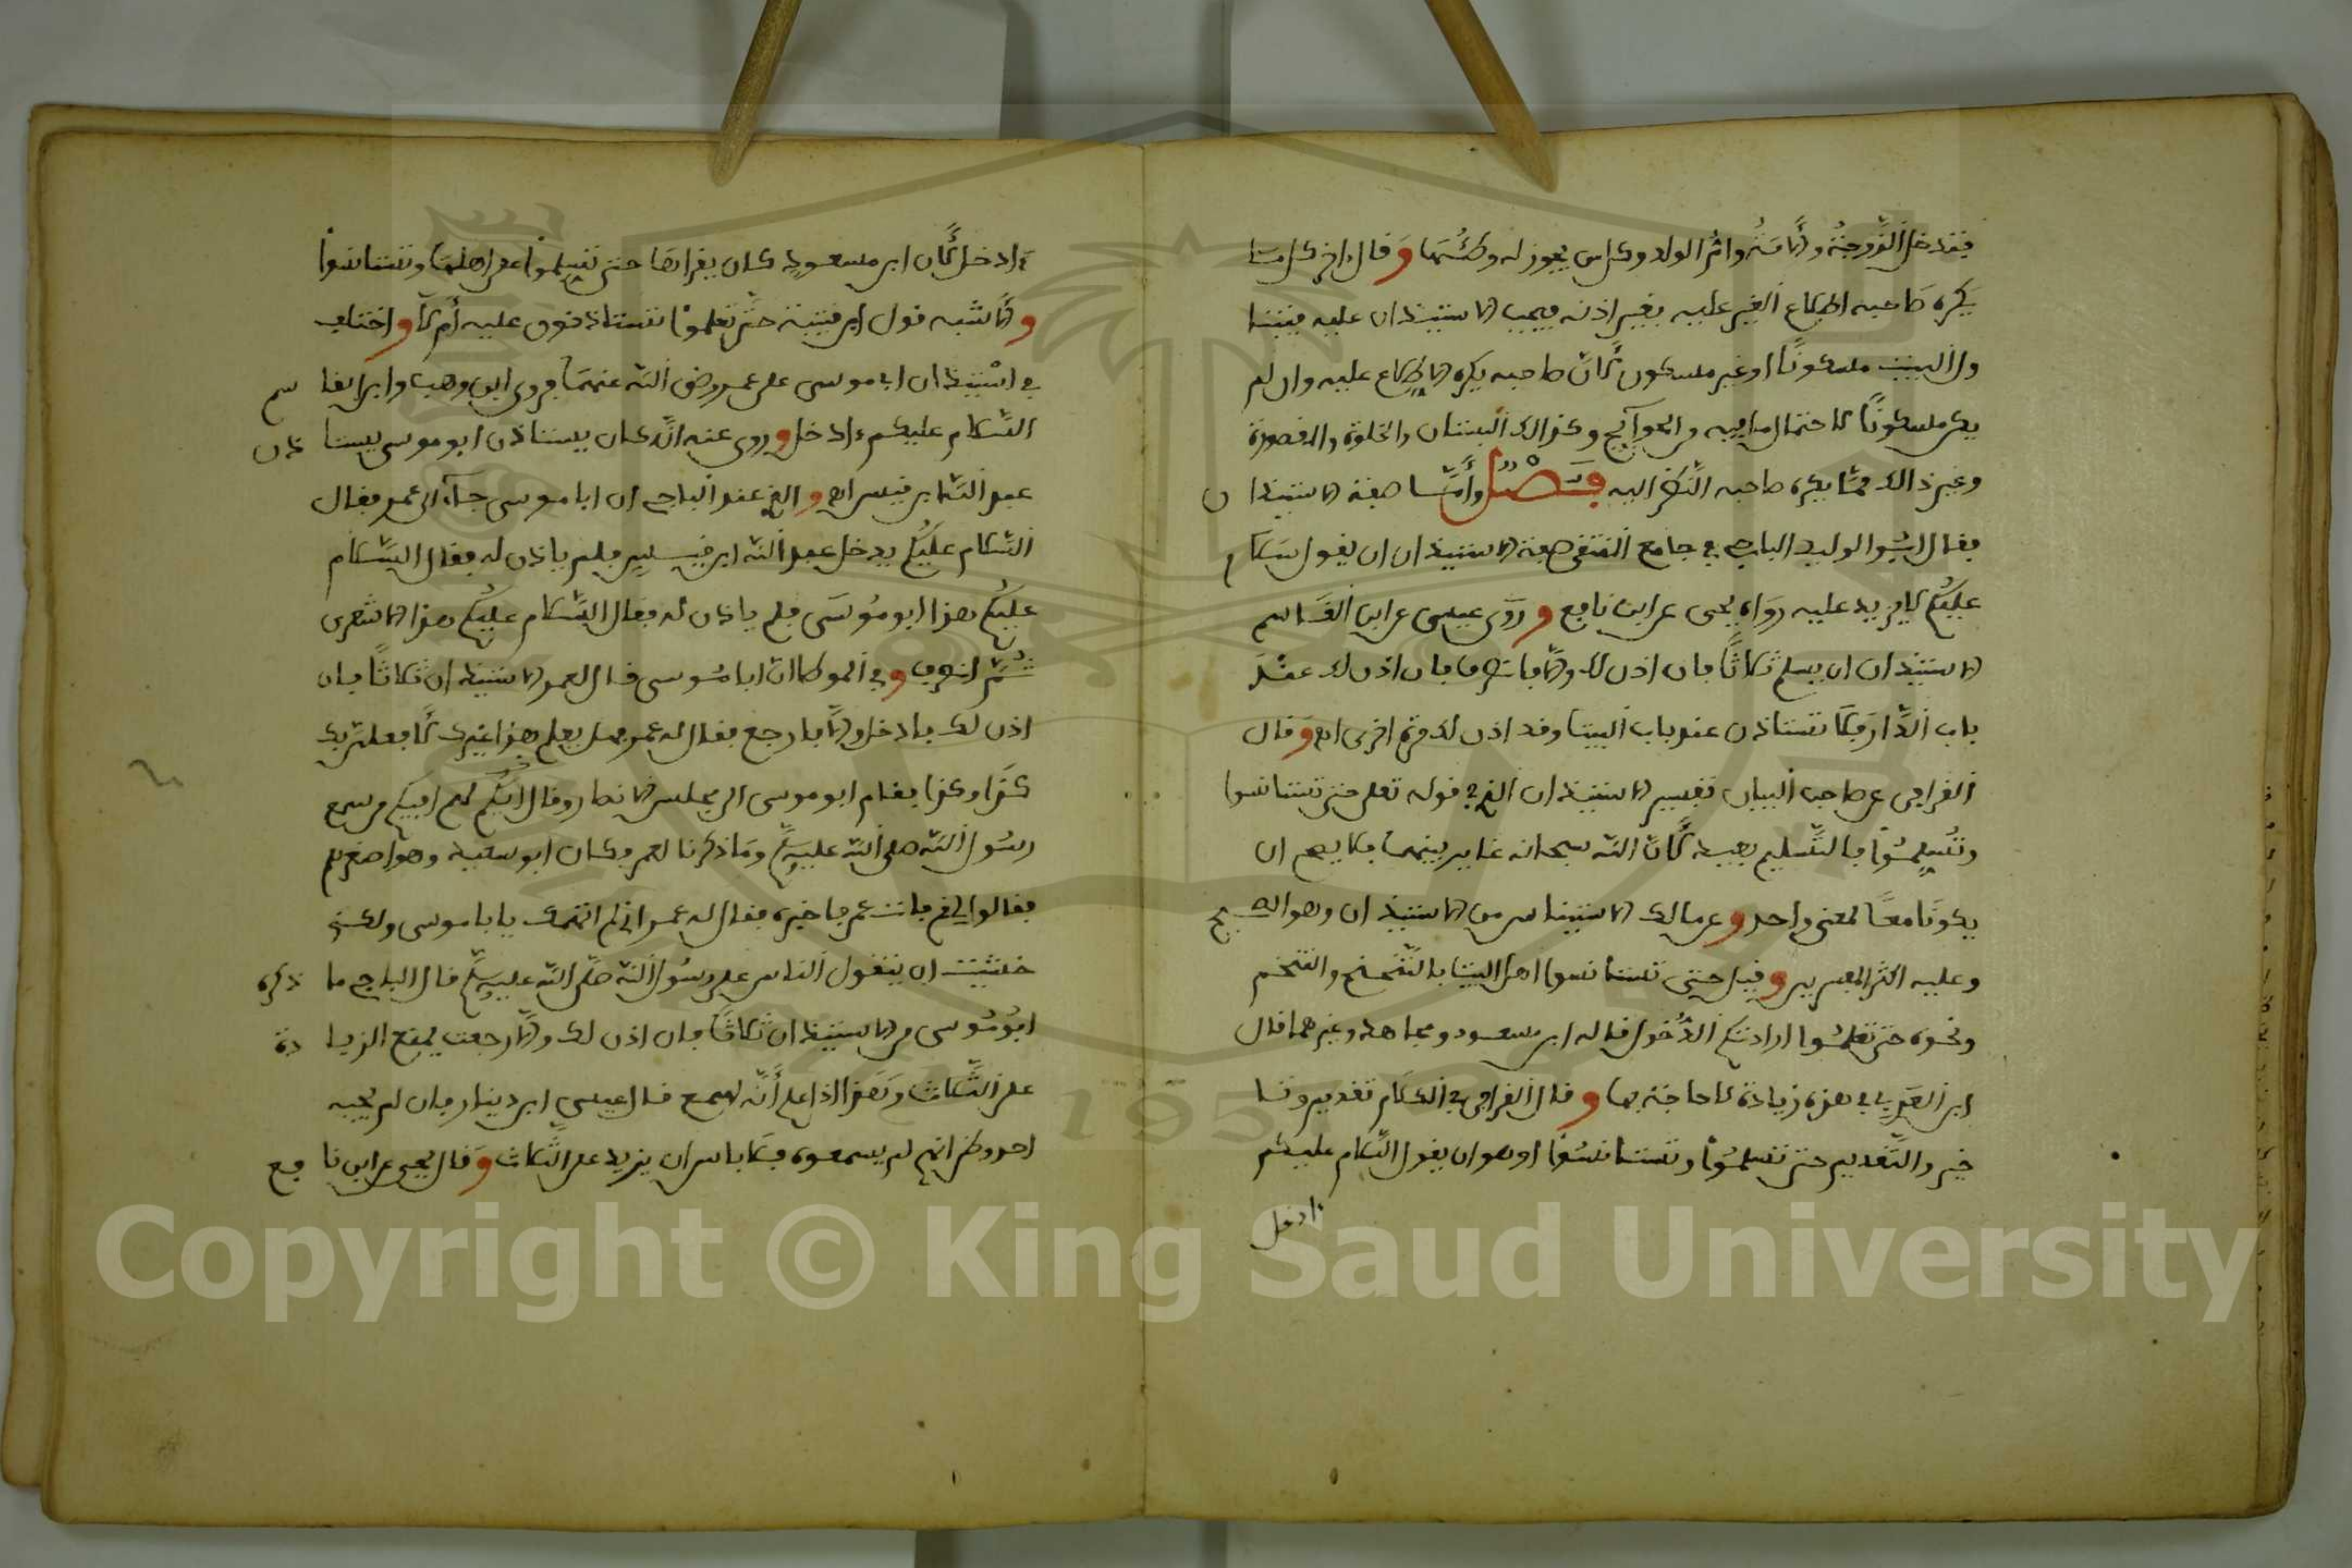 فتدخل الزوجة والأمة وأم الولد وكل من يجوز له وطئها وقال في كل ما
يكره صاحبه اطلاع الغير عليه بغير اذنه فيجب الاستيذان عليه
البيت مسكونا او غير مسكون لأن صاحبه يكره الاطلاع عليه وان لم
يكن مسكونا لاحتمال ما فيه من الحوآئج وكذالك البستان والخلوة والمقصورة
وغير ذالك مما يكره صاحبه النظر اليه فصل وأما صفة الاستيذان
فقال ابو الوليد الباجي في جامع المنتقى صفة الاستيذان ان يقول سلام
عليكم لا يزيد عليه رواه يحيى عن ابن نافع وروى عيسى عن ابن القاسم
الاستيذان ان يسلم ثلاثا فان اذن لك والا فانصرف فان اذن لك عند
باب الدار فلا تستاذن عند باب البيت وقد اذن لك مرة اخرى اه وقال
القرافي عن صاحب البيان تفسير الاستيذان الذي في قوله تعلى حتى تستانسوا
وتسلموا بالتسليم بعيد لأن الله سبحانه غاير بينهما فلا يصح ان
يكونا معا لمعنى واحد وعن مالك الاستيناس من الاستيذان وهو الصحيح
وعليه اكثر المفسرين وقيل حتى تستانسوا اهل البيت بالتنحنح والتنخم
ونحوه حتى تعلموا ارادتكم الدخول قاله ابن مسعود ومجاهد وغيرهما قال
ابن العربي في هذه زيادة لا حاجة بها وقال القرافي في الكلام تقديم وتا
خير والتقدير حتى تسلموا وتستانسوا وهو ان يقول السلام عليكم
ءادخل
ءادخل لأن ابن مسعود كان يقرأها حتى تسلموا على اهلها وتستانسوا
والاشبه قول ابن قتيبة حتى تعلموا تستاذنون عليه أم لا واختلف
في استيذان ابي موسى على عمر رضي الله عنهما فروى ابن وهب وابن القاسم
السلام عليكم ءادخل وروي عنه انه كان يستاذن ابو موسى يستاذن
عبد الله ابن قيس اه والذي عند الباجي ان ابا موسى جآء الى عمر فقال
السلام عليكم يدخل عبد الله ابن قيس فلم ياذن له فقال السلام
عليكم هذا ابو موسى فلم ياذن له فقال السلام عليكم هذا الاشعري
ثم انصرف وفي الموطا ان ابا موسى قال لعمر الاستيذان ثلاثا فان
اذن لك فادخل والا فارجع فقال له عمر هل يعلم هذا غيرك لأفعلن بك
كذا وكذا فقام ابو موسى الى مجلس الانصار وقال أيكم فيكم من سمع
رسول الله صلى الله عليه وسلم وما ذكرنا لعمر وكان ابو سعيد وهو اصغرهم
فقالوا لي قم فانت عمر فاخبره فقال له عمر اني لم اتهمك يا با موسى ولكني
خشيت ان يتقول الناس على رسول الله صلى الله عليه وسلم قال الباجي ما ذكره
ابو موسى من الاستيذان ثلاثا فان اذن لك والا رجعت يمنع الزيادة
على الثلاث وهذا اذا علم أنه سمع قال عيسى ابن دينار فان لم يجبه
احد وظن انهم لم يسمعوه فلا باس ان يزيد على الثلاث وقال يحيى عن ابن نافع
Copyright © King Saud University
1957